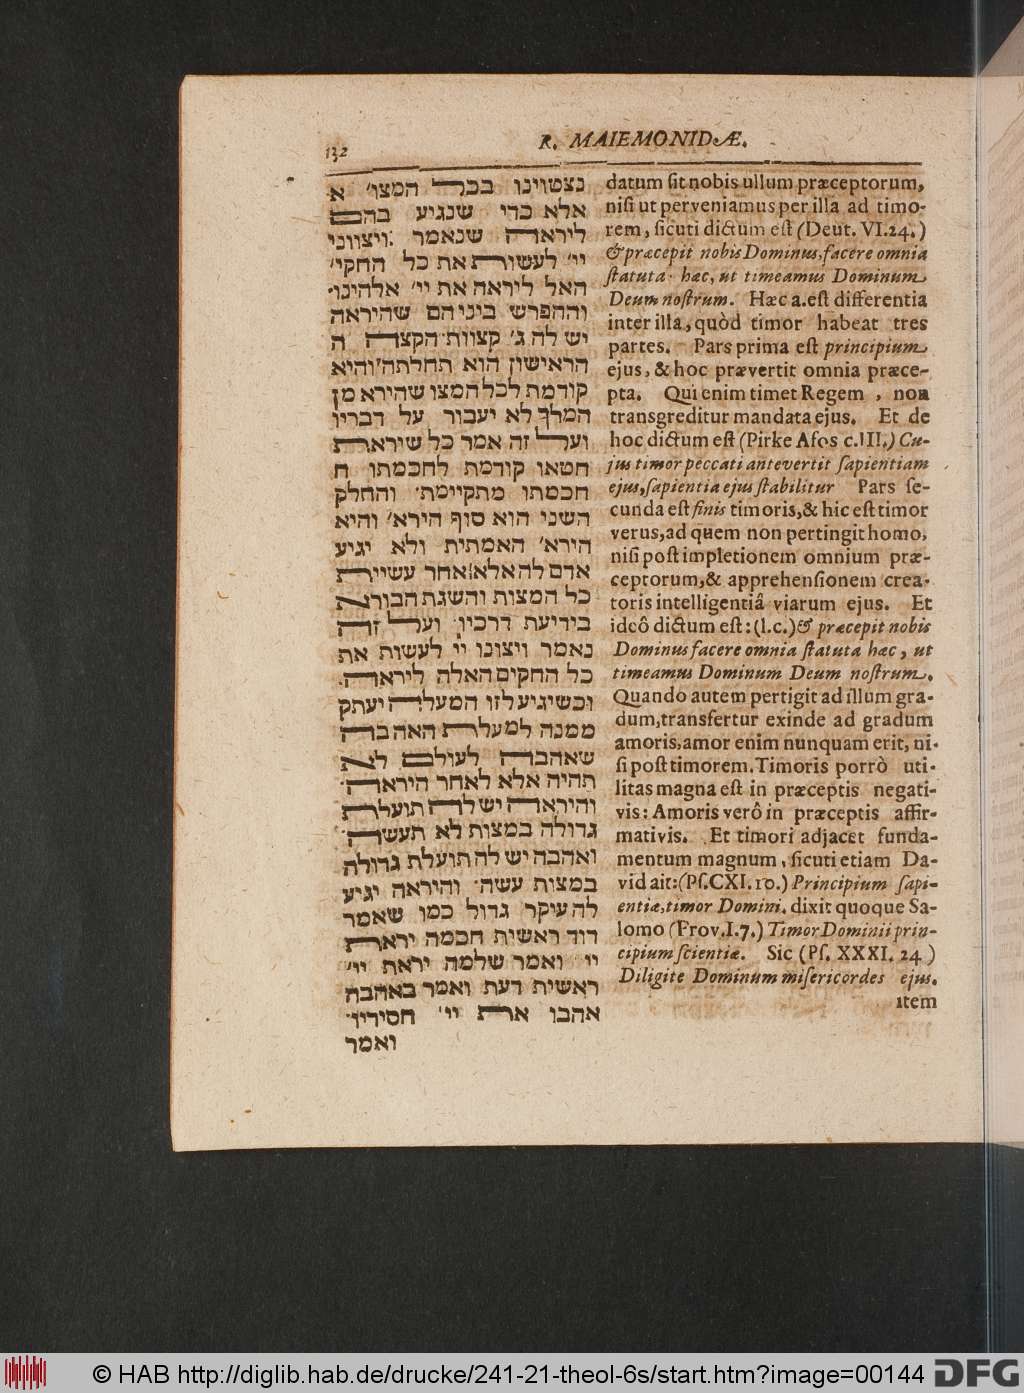 132
R. MAIEMONIDÆ.
נצטוינו בכל המצו׳ א
אלא כדי שנגיע בהם
ליראה שנאמר :ויצווני
יי׳ לעשות את כל החקי׳
האל ליראה את יי׳ אלהינו·
וההפרש ביניהם שהיראה
יש לה ג׳ קצוות·הקצה ה
הראישון הוא תחלתה׳והיא
קודמת לכל המצו שהירא מן
המלך לא יעבור על דבריו
ועל זה אמר כל שיראת
חטאו קודמת לחכמתו ח
חכמתו מתקיימת· והחלק
השני הוא סוף הירא׳ והיא
הירא׳ האמתית ולא יגיע
אדם לה אלא אחר עשיית
כל המצות והשגת הבורא
בידיעת דרכיו· ועל זה
נאמר ויצונו יי לעשות את
כל החקים האלה ליראה.
וכשיגיע לזו המעלה יעתק
ממנה למעלת האהבה
שאהבה לעולם לא
תהיה אלא לאחר היראה·
והיראה יש לה תועלת
גדולה במצות לא תעשה·
ואהבה יש לה תועלת גדולה
במצות עשה· והיראה יגיע
לה עיקר גדול כמו שאמר
דוד ראשית חכמה יראת
יי ואמר שלמה יראת יי׳
ראשית דעת ואמר באהבה
אהבו את יי׳ חסידיו·
ואמר
datum ſit nobis ullum præceptorum,
niſi ut perveniamus per illa ad timo-
rem, ſicuti dictum eſt (Deut. VI.24.)
& præcepit nobis Dominus, facere omnia
ſtatuta hæc, ut timeamus Dominum
Deum noſtrum. Hæc a.eſt differentia
inter illa, quòd timor habeat tres
partes. Pars prima eſt principium
ejus, & hoc prævertit omnia præce-
pta. Qui enim timet Regem , non
transgreditur mandata ejus. Et de
hoc dictum eſt (Pirke Afos c.III.) Cu-
jus timor peccati antevertit ſapientiam
ejus, ſapientia ejus ſtabilitur Pars ſe-
cunda eſt finis timoris,& hic eſt timor
verus, ad quem non pertingit homo,
niſi poſt impletionem omnium præ-
ceptorum,& apprehenſionem crea-
toris intelligentiâ viarum ejus. Et
ideô dictum eſt : (l.c.) & præcepit nobis
Dominus facere omnia ſtatuta hæc, ut
timeamus Dominum Deum noſtrum.
Quando autem pertigit ad illum gra-
dum, transfertur exinde ad gradum
amoris, amor enim nunquam erit, ni-
ſi poſt timorem. Timoris porrò uti-
litas magna eſt in præceptis negati-
vis: Amoris verô in præceptis affir-
mativis. Et timori adjacet funda-
mentum magnum, ſicuti etiam Da-
vid ait: (Pſ.CXI. 10.) Principium ſapi-
entiæ, timor Domini. dixit quoque Sa-
lomo (Prov.I.7.) Timor Dominii prin-
cipium ſcientiæ. Sic (Pſ. XXXI. 24 )
Diligite Dominum miſericordes ejus.
item
© HAB http://diglib.hab.de/drucke/241-21-theol-6s/start.htm?image=00144
DFG